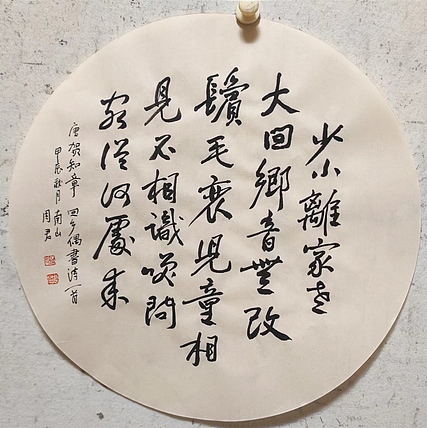 少小離家老
大回鄉音無改
鬢毛衰兒童相
見不相識咲問
客從何處來
唐賀知章 回乡偶書诗一首
甲辰秋月 南山
周君